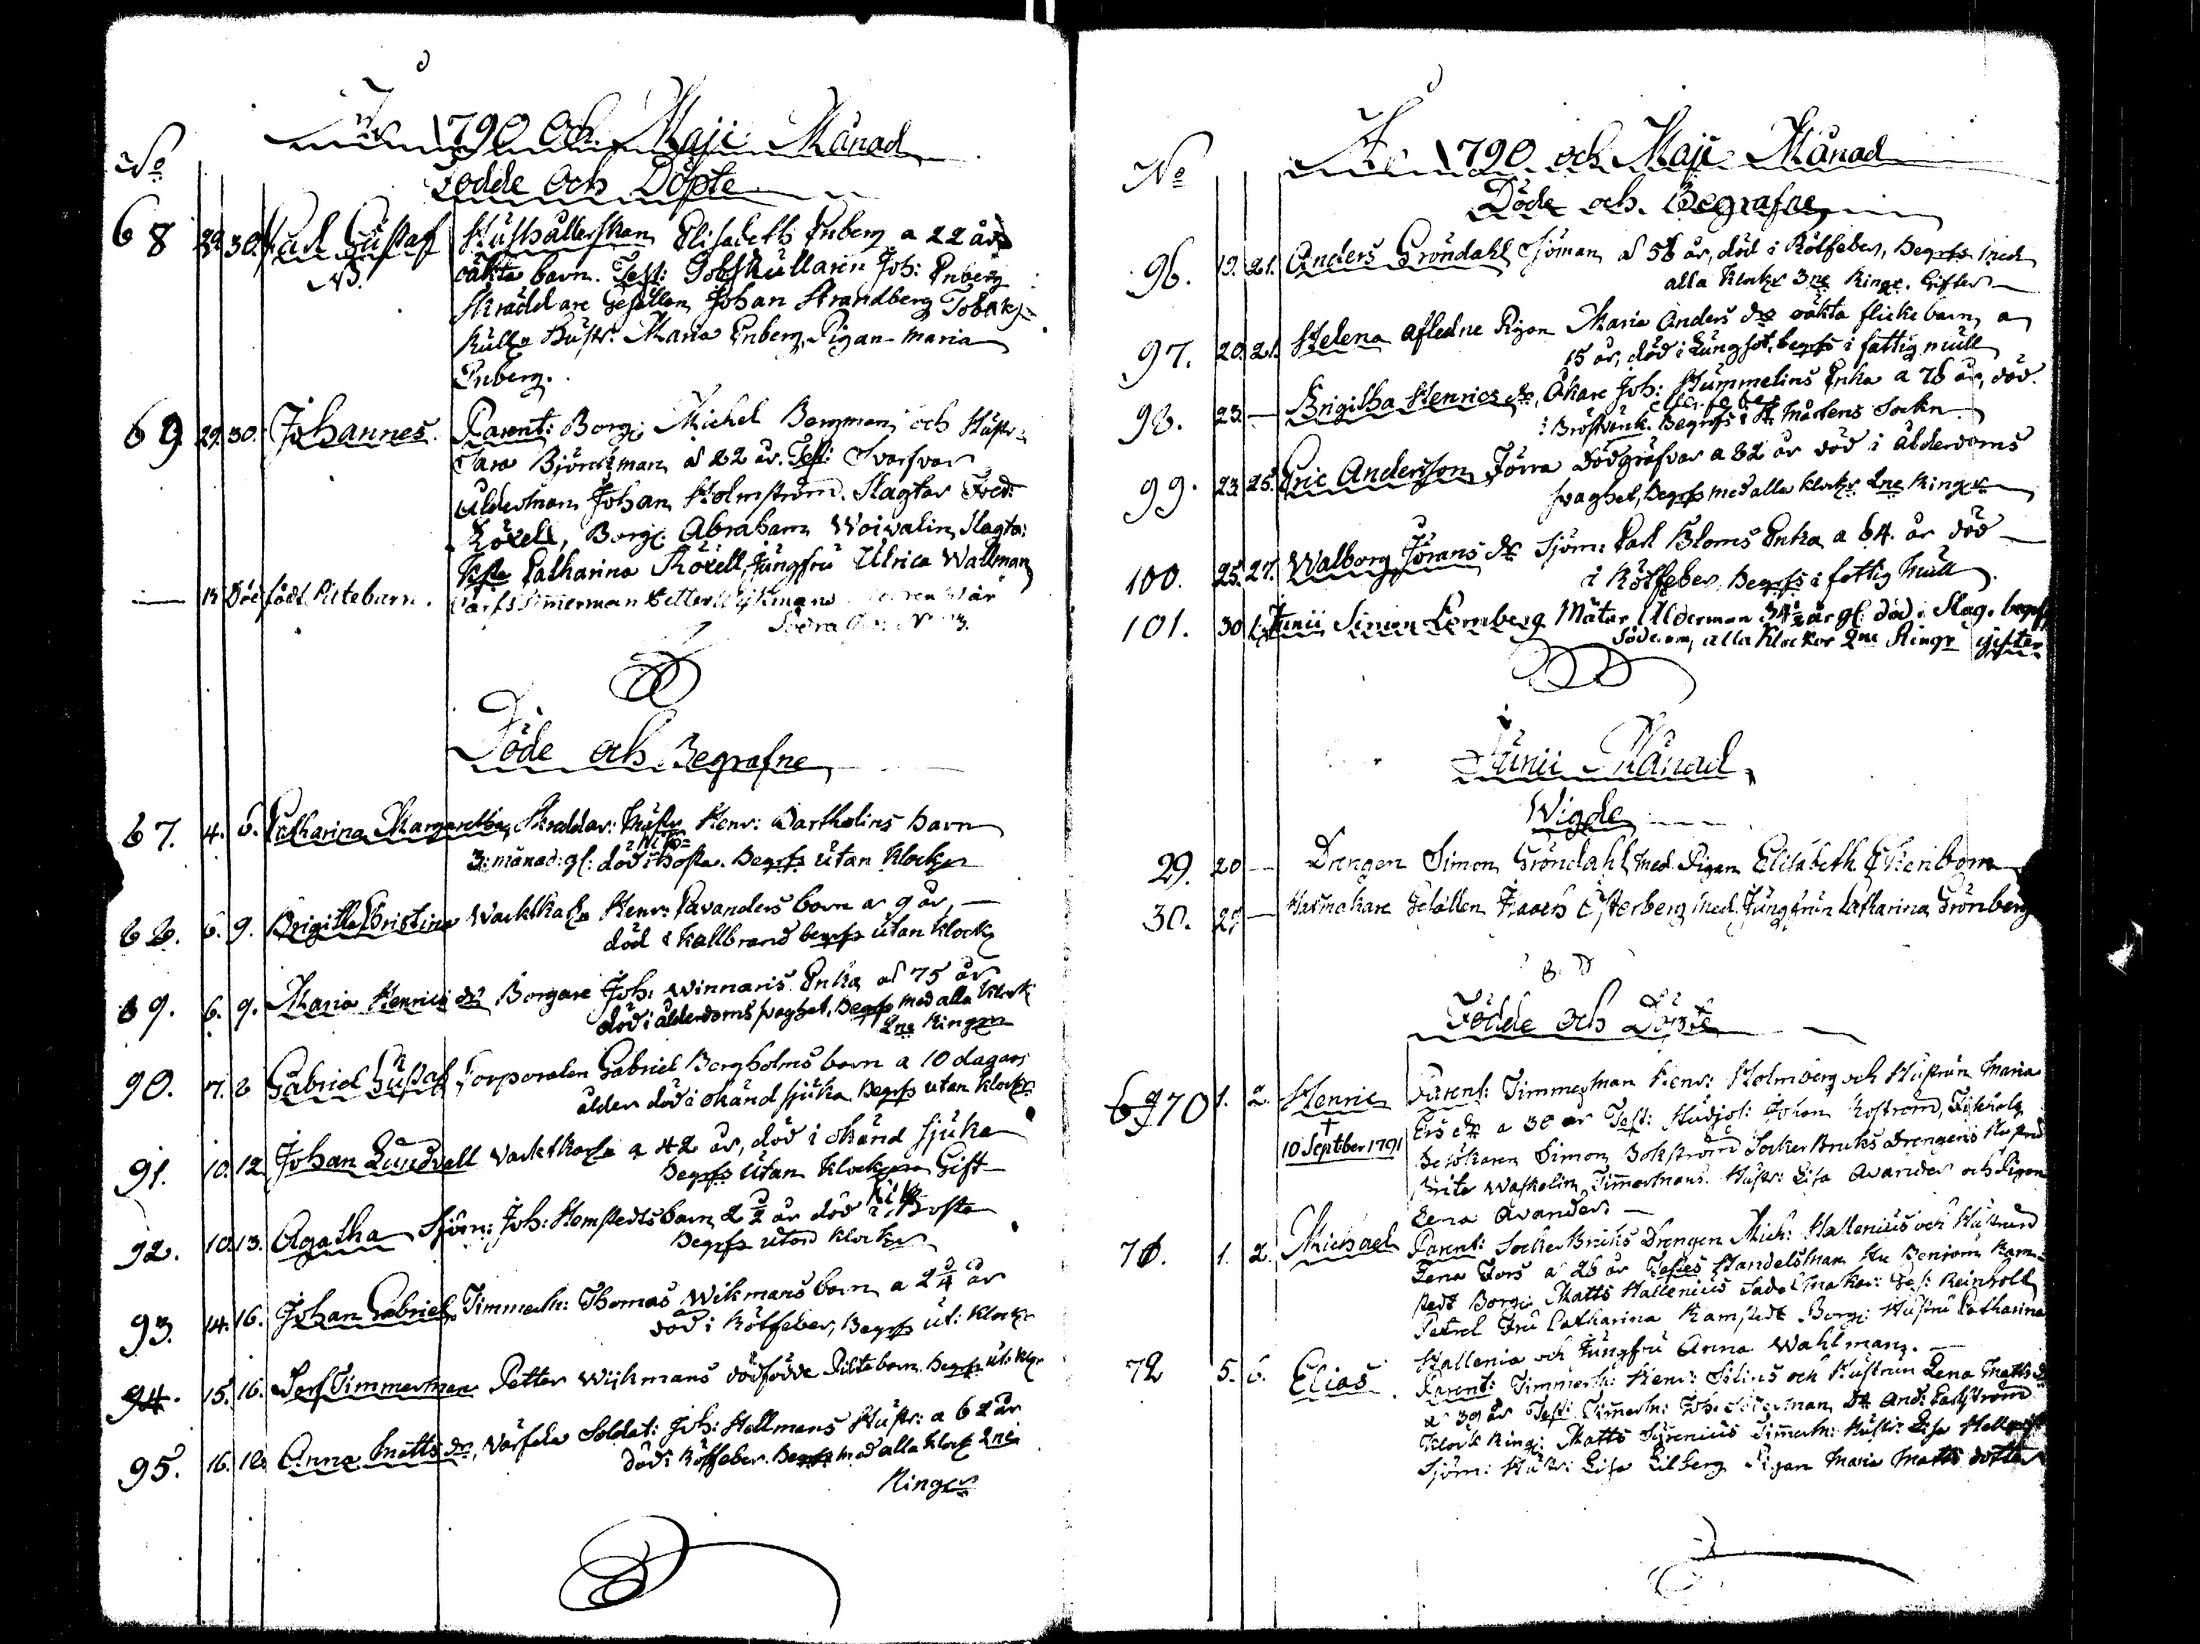 År 1790 Och Maji Månad
No
Födde Och Döpte
68 29. 30. Carl Gustaf Hushållerskan Elisabeth Enberg a 22 års
NB. oäkta barn. Test: Tobakspullaren Joh: Enberg
Skräddare Gesällen Johan Strandberg Tobaks
Hustr: Maria Enberg, Pigan Maria
Enberg.
69 29. 30. Johannes. Parent: Borg: Michel Bergman och Hustr:
Sara Björckman a 22 år. Test: Svarfvar
ålderman Johan Holmström. Slagtar Fred:
Roxell, Borg: Abraham Woivalin, Slagta:
Catharina Roxell, Jungfru Ulrica Wallman
— 15 Död födt Pilte barn. Varfs Timmerman Petter Wijkmans
Döde och Begrafne
67. 4. 6. Catharina Margaretha, Skräddar: Mäst: Henr: Bartholins barn
3: månad: gl: död i Kik=Hosta. Begrfs utan klockor
88. 6. 9. Brigitta Christina Wacktkarln Henr: Pavanders barn a 9 år, —
död i kallbrand begrfs utan klock
89. 6. 9. Maria Henrics dr Borgare Joh: Winnaris Enka a 75 år
död i ålderdoms svaghet, Begrfs med alla klock
2ne Ringn
90. 7. 8 Gabriel Gustaf Corporalen Gabriel Bergholms barn a 10 dagars
ålder död i okänd sjuka Begrfs utan klock:
91. 10. 12 Johan Lundvall Wacktkarln a 42 år, död i okänd sjuka
Begrfs utan klockor Gift
92. 10. 13. Agatha Sjöm: Joh: Hemstedts barn 2 1/2 år död i Kik Hosta
Begrfs utan klockor
93. 14. 16. Johan Gabriel Timmerm: Thomas Wikmans barn a 2 1/4 år
död i Rötfeber, Begrfs ut: klock
94. 15. 16. Varfs Timmerman Petter Wijkmans dödfödde Pilte barn Begrfs ut: klr
95. 16. 18. Anna Matts dr, Värfvde Soldat: Joh: Hellmans Hustr: a 62 år
död i Rötfeber. Begrfs med alla klock 2ne
Ringer
År 1790 och Maji Månad
No
Döde och Begrafne
96. 19. 21. Anders Gröndahl Sjöman a 58 år, död i Rötfeber, Begrfs med
alla klockr 3ne Ringr. Gifter
97. 20. 21. Helena afledne Pigan Maria Anders drs oäkta flicke barn, a
15 år, död i Lungsot, begrfs i fattig mull
98. 23. — Brigitha Henrics dr, Åkare Joh: Hummelins Enka a 78 år, död
i Bröstvärk. Begrafs i St. Mårtens Sockn
99. 23. 25. Eric Andersson, Förra Dödgräfvar a 82 år död i ålderdoms
svaghet, Begrfs med alla klockr 2ne Ringr
100. 25. 27. Walborg Jörans dr Sjöm: Carl Bloms Enka a 64 år död —
i Rötfeber, Begrfs i fattig Mull
101. 30 1. Junii Simon Lemberg Mätar Ålderman 34 1/2 år gl: död i Slag. begrfs
Söderom, alla klockor 2ne Ringr gifter
Junii Månad
Wigde
29. 20 — Drengen Simon Gröndahl med Pigan Elisabeth Ekenbom
30. 29 — Hatmakare Gesällen Österberg med Jungfrun Catharina Grönberg
Födde och Döpte
70 1. 2. Henric Parent: Timmerman Henr: Holmberg och Hustrun Maria
† Ers dr a 30 år Test: Johan
10 Septber 1791 Besökaren Simon Bokström Socker Bruks Drengens Hustru
Brita Waskelin, Timmermans Hustr: Lisa Avander och Pigan
Lena Avander. —
71. 1. 2. Michael Parent: Socker Bruks Drengen Mich: Hallenius och Hustrun
Lena Fors a 26 år Testes Handelsman Hr Benjam: Ram-
stedt Borg: Matts Hallenius Sadelmakar: Ges: Reinhold
Petrel Fru Catharina Ramstedt Borg: Hustru Catharina
Hallenia och Jungfru Anna Wahlman. —
72 5. 6. Elias. Parent: Timmerm: Henr: Silius och Hustrun Lena Matts dr
a 39 år Test: Timmerm: Joh: Söderman, And: Cajström
Klock Ring: Matts Syrenius Timmerm: Hustr: Lisa
Sjöm: Hustr: Lisa Lilberg Pigan Maria Matts dotter